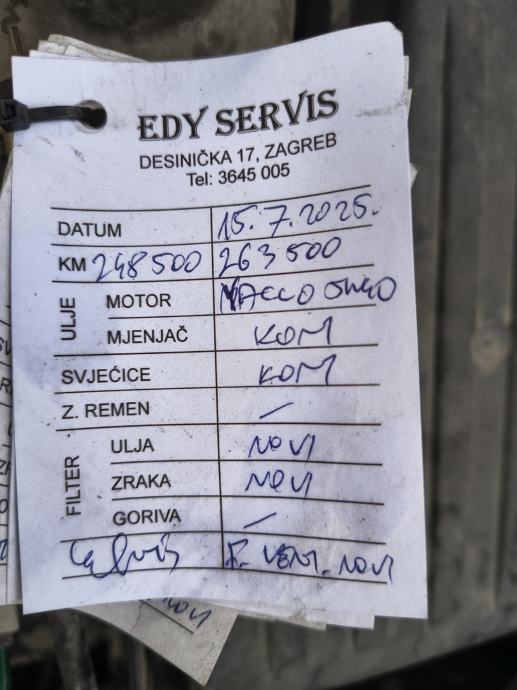 EDY SERVIS
DESINIČKA 17, ZAGREB
Tel: 3645 005
DATUM 15.7.2025.
KM 248500 263500
ULJE
MOTOR 5W40
MJENJAČ KOM
SVJEĆICE KOM
Z. REMEN —
FILTER
ULJA NOVI
ZRAKA NOVI
GORIVA —
F. VENT. NOVI
NOVI